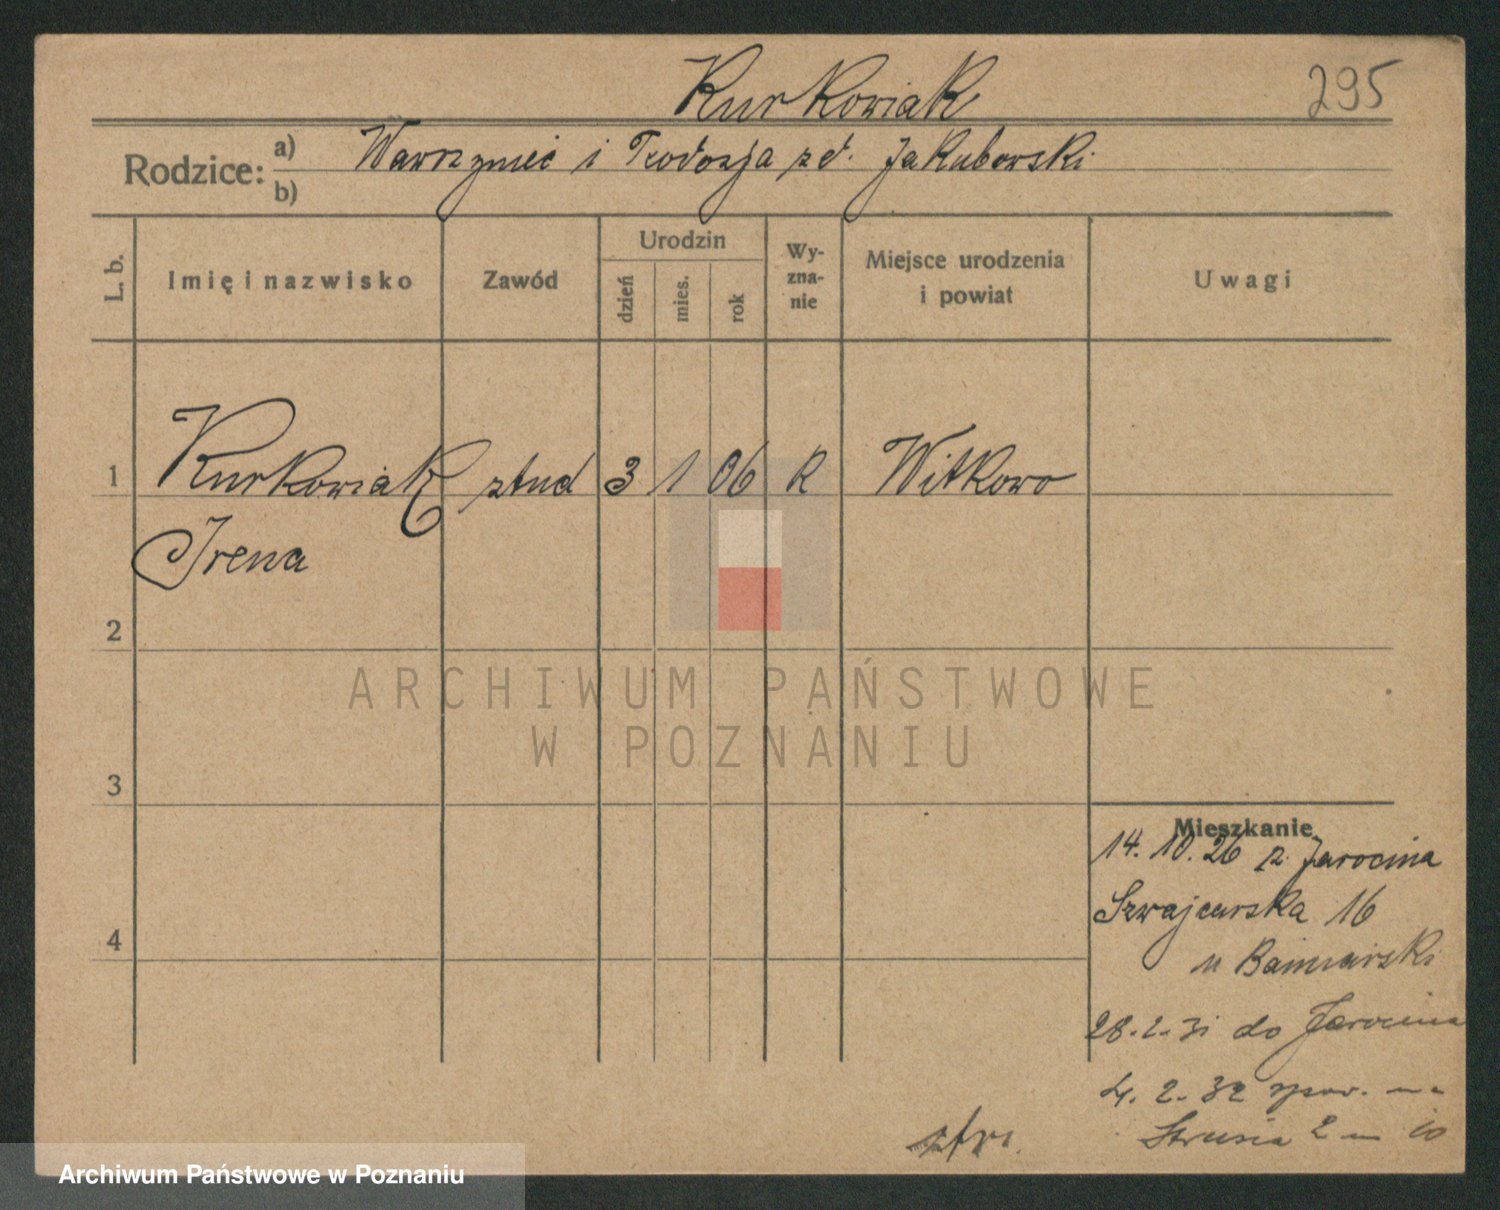 Kurkowiak
295
Rodzice: a) Wawrzyniec i Teodozja zd. Jakubowski
b)
L. b. Imię i nazwisko Zawód Urodzin dzień mies. rok Wy-zna-nie Miejsce urodzenia i powiat Uwagi
1 Kurkowiak stud 3 1 06 K Witkowo
Irena
2
ARCHIWUM PAŃSTWOWE
W POZNANIU
3
Mieszkanie
14. 10. 26 z Jarocina
Szwajcarska 16
4
u
28.2.31 do Jarocina
4. 2. 32 spow. na
Strusia 2 m 10
Archiwum Państwowe w Poznaniu